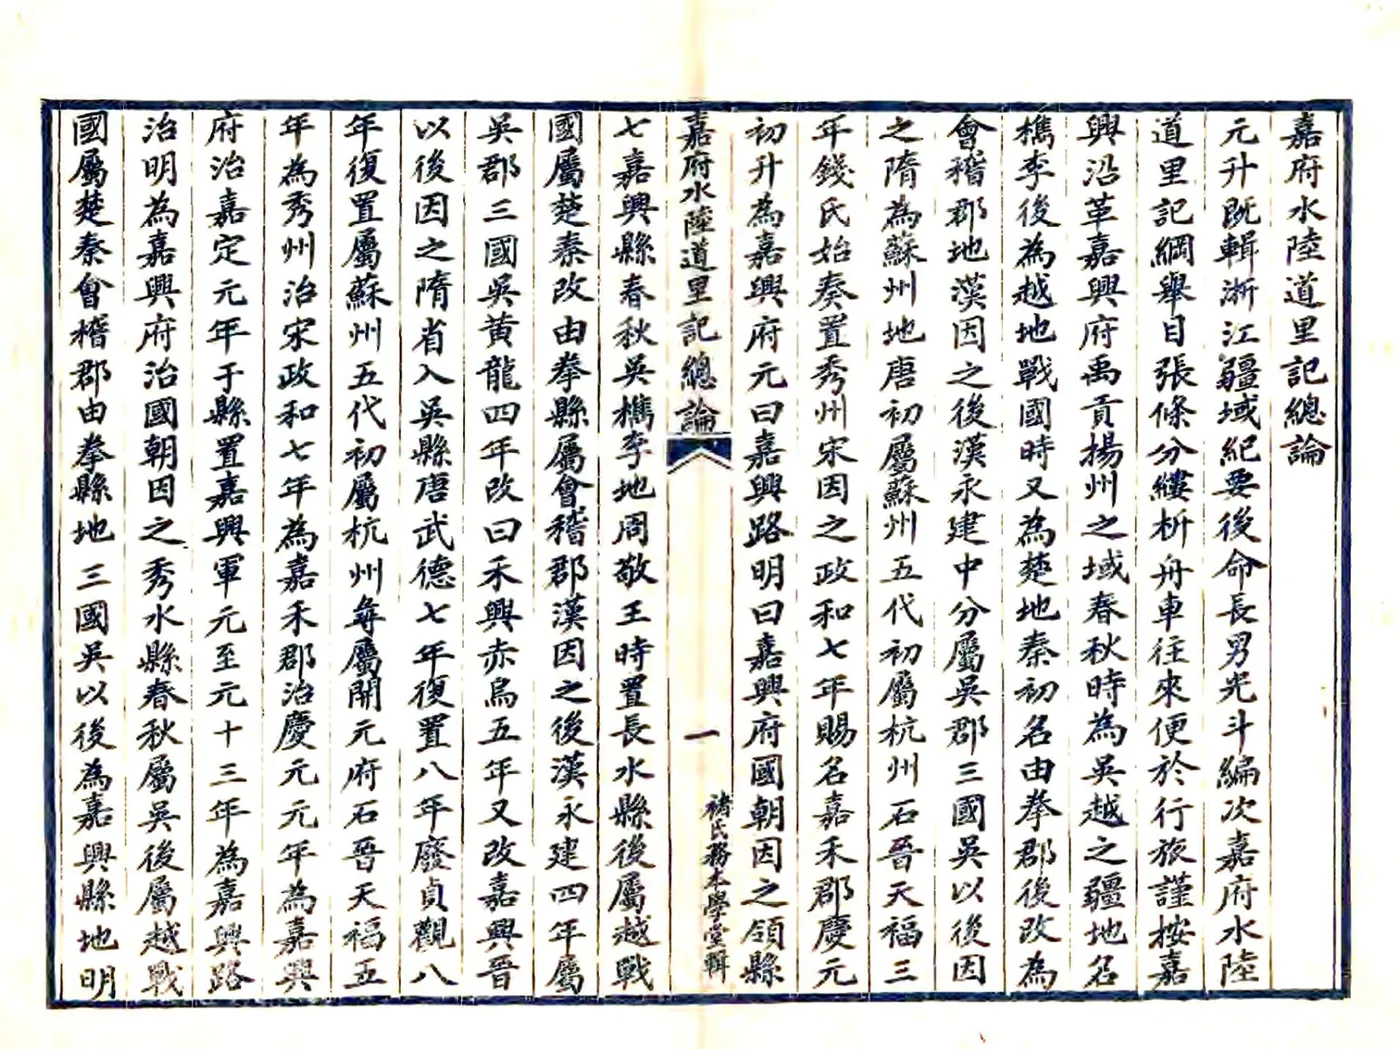 嘉府水陸道里記總論
元升既輯浙江疆域紀要後命長男光斗編次嘉府水陸
道里記綱舉目張條分縷析舟車往來便於行旅謹按嘉
興沿革嘉興府禹貢揚州之域春秋時為吳越之疆地名
檇李後為越地戰國時又為楚地秦初名由拳郡後改為
會稽郡地漢因之後漢永建中分屬吳郡三國吳以後因
之隋為蘇州地唐初屬蘇州五代初屬杭州石晉天福三
年錢氏始奏置秀州宋因之政和七年賜名嘉禾郡慶元
初升為嘉興府元曰嘉興路明曰嘉興府國朝因之領縣
嘉府水陸道里記總論
一
褚氏務本學堂輯
七嘉興縣春秋吳檇李地周敬王時置長水縣後屬越戰
國屬楚秦改由拳縣屬會稽郡漢因之後漢永建四年屬
吳郡三國吳黃龍四年改曰禾興赤烏五年又改嘉興晉
以後因之隋省入吳縣唐武德七年復置八年廢貞觀八
年復置屬蘇州五代初屬杭州尋屬開元府石晉天福五
年為秀州治宋政和七年為嘉禾郡治慶元元年為嘉興
府治嘉定元年于縣置嘉興軍元至元十三年為嘉興路
治明為嘉興府治國朝因之秀水縣春秋屬吳後屬越戰
國屬楚秦會稽郡由拳縣地三國吳以後為嘉興縣地明